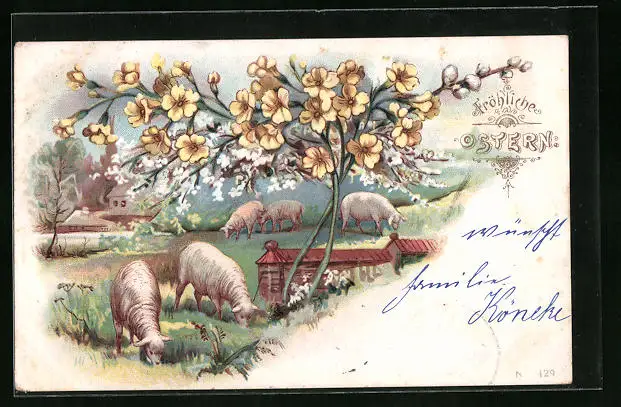 Fröhliche
OSTERN.
wünscht
familie
Köneke
N 120